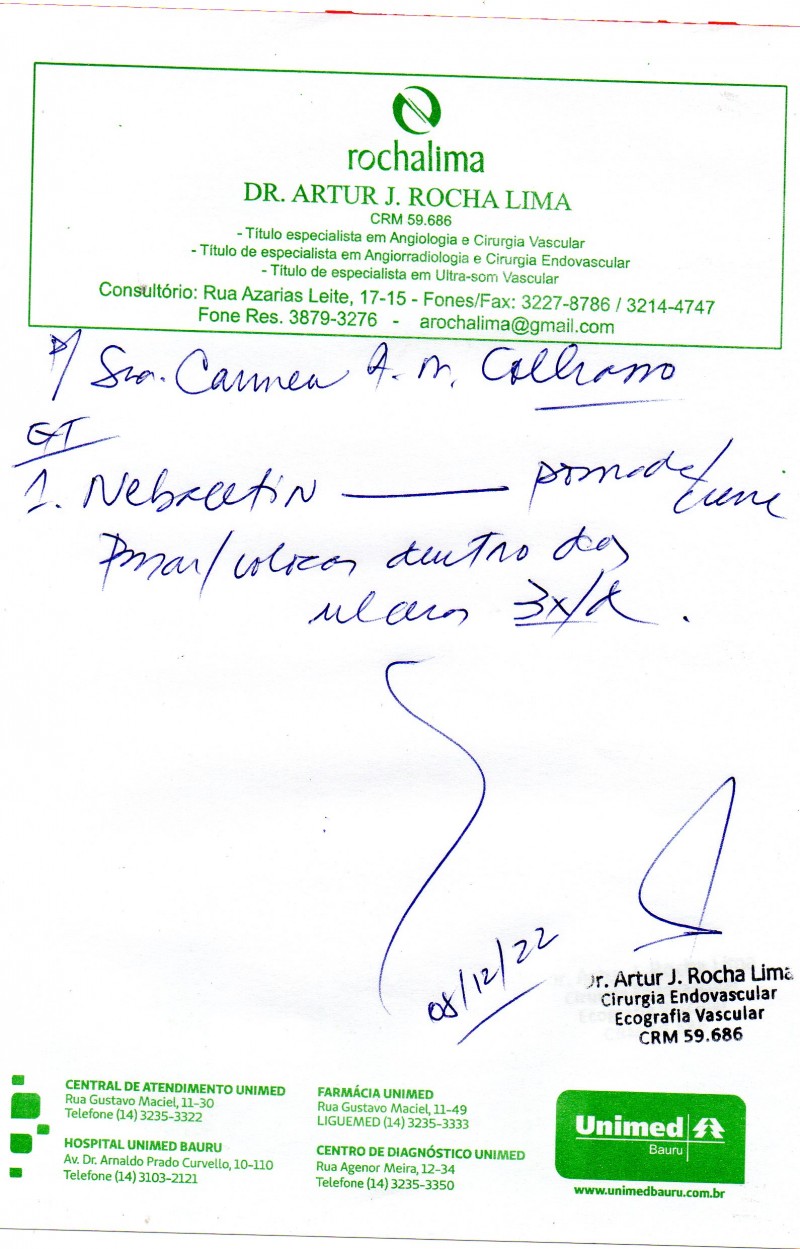 rochalima
DR. ARTUR J. ROCHA LIMA
CRM 59.686
- Título especialista em Angiologia e Cirurgia Vascular
- Título de especialista em Angiorradiologia e Cirurgia Endovascular
- Título de especialista em Ultra-som Vascular
Consultório: Rua Azarias Leite, 17-15 - Fones/Fax: 3227-8786 / 3214-4747
Fone Res. 3879-3276 - arochalima@gmail.com
P/ Sra. Carmen A. M.
1. Nebacetin pomada/creme
Passar/colocar dentro das
úlceras 3x/d.
08/12/22
Dr. Artur J. Rocha Lima
Cirurgia Endovascular
Ecografia Vascular
CRM 59.686
CENTRAL DE ATENDIMENTO UNIMED
Rua Gustavo Maciel, 11-30
Telefone (14) 3235-3322
HOSPITAL UNIMED BAURU
Av. Dr. Arnaldo Prado Curvello, 10-110
Telefone (14) 3103-2121
FARMÁCIA UNIMED
Rua Gustavo Maciel, 11-49
LIGUEMED (14) 3235-3333
CENTRO DE DIAGNÓSTICO UNIMED
Rua Agenor Meira, 12-34
Telefone (14) 3235-3350
Unimed
Bauru
www.unimedbauru.com.br